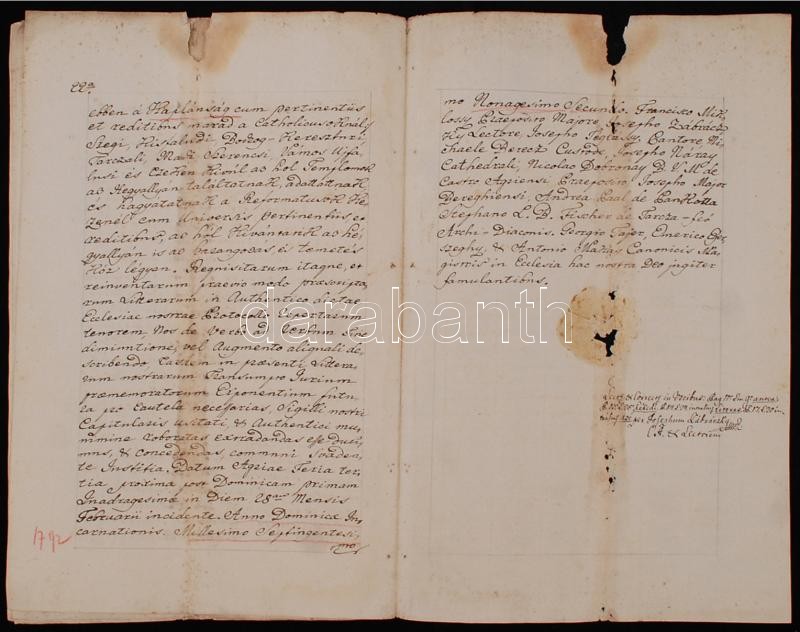 22do
ebben á Harlánság cum pertinentiis
et reditions marad a Catholicusoknál,
Szegi, Kisfaludi, Bodrog-Kereszturi
Tarczali, Mádi Szerencsi, Vámos Ujfa,
lusi és Czékén Kivül ac hol Templomok
ac Hegyallyan találtatnak, adattatnak
és hagyatatnak a Reformatusok Ke,
zenél cum Universis pertinentiis et
reditions, ac hol Kivántatik ac he,
gyallyan is ac harangocas, és temetés
Köz legyen. Requisitarum itaque, et
reinventarum praevio modo praescripta,
rum Litterarum in Authentico dictae
Ecclesiae nostrae Protocollo repertarum
tenorem Nos de verbo ad verbum Sine
diminutione, vel Augmento aliquali de,
scribendo, easdem in praesenti Littera,
rum nostrarum Transumpo Jurium
praememoratorum Exponentium futu,
ra pro Cautela necessarias, Sigilli nostri
Capitularis usitati, & Authentici mu,
nimine roboratas extradandas esse duxi,
mus, & concedendas, communi Svaden,
te Justitia. Datum Agriae Feria ter,
tia proxima post Dominicam primam
Quadragesimae in Diem 28am Mensis
Februarii incidente. Anno Dominicae In,
carnationis. Millesimo Septingentesi,
mo
1792
mo Nonagesimo Secundo. Francisco Mik,
lossy, Praeposito Majore, Josepho Zábrácz,
ky Lectore, Josepho Cantore, Mi,
chaele Berecz Custode, Josepho Náray
Cathedrali, Nicolao Dobronay B. V. M. de
Castro Agriensi, Praeposito, Josepho Major
Bereghiensi, Andrea Gaal de Pankotta
Stephano L. B. Fischer de Tarcza-féő
Archi-Diaconis. Georgio Tajer, Emerico
szeghy, & Antonio Makay Canonicis Ma,
gistris in Ecclesia hac nostra Deo jugiter
famulantions.
darabanth
Lecta & Correcta in
per Josephum Zábráczky
C. A. & Lectorem